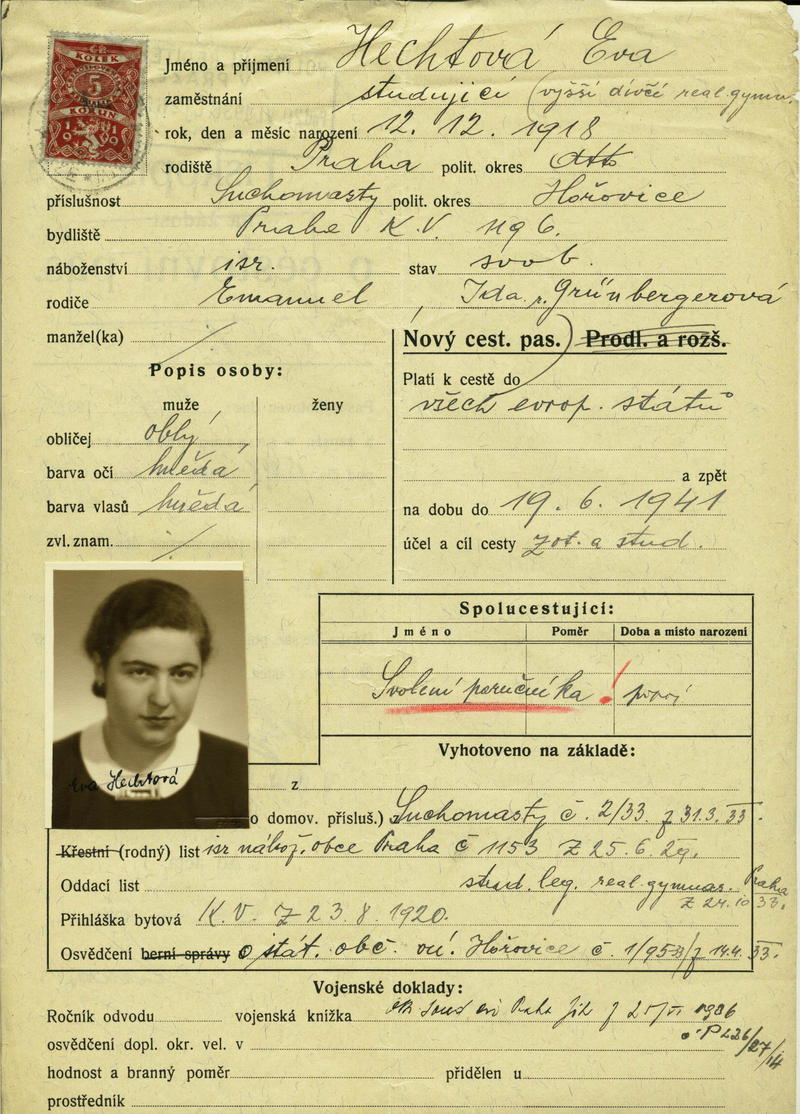 KOLEK
5
KORUN
Jméno a příjmení Hechtová Eva
zaměstnání studující (vyšší dívčí real. gymn.
rok, den a měsíc narození 12. 12. 1918
rodiště Praha polit. okres
příslušnost Suchomasty polit. okres Hořovice
bydliště Praha K. V. 1196.
náboženství isr. stav svob.
rodiče Emanuel, Ida r. Grünbergerová
manžel(ka)
Nový cest. pas.) Prodl. a rozš.
Popis osoby:
Platí k cestě do
muže ženy
všech evrop. států
obličej oblý
barva očí hnědá
a zpět
barva vlasů hnědá
na dobu do 19. 6. 1941
zvl. znam.
účel a cíl cesty zot. a stud.
Spolucestující:
Jméno Poměr Doba a místo narození
Svolení poručníka!
Vyhotoveno na základě:
Eva Hechtová
z
o domov. přísluš.) Suchomasty č. 2/33 z 31.3.33.
Křestní (rodný) list isr. nábož. obce Praha č 1153 z 25. 6. 29.
Oddací list stud. leg. real. gymnas. Praha
z 24. 10 33.
Přihláška bytová K. V. z 23. 8. 1920.
Osvědčení berní správy o stát. obč. Hořovice č. z 14.4. 33.
Vojenské doklady:
Ročník odvodu vojenská knížka
osvědčení dopl. okr. vel. v
hodnost a branný poměr přidělen u
prostředník